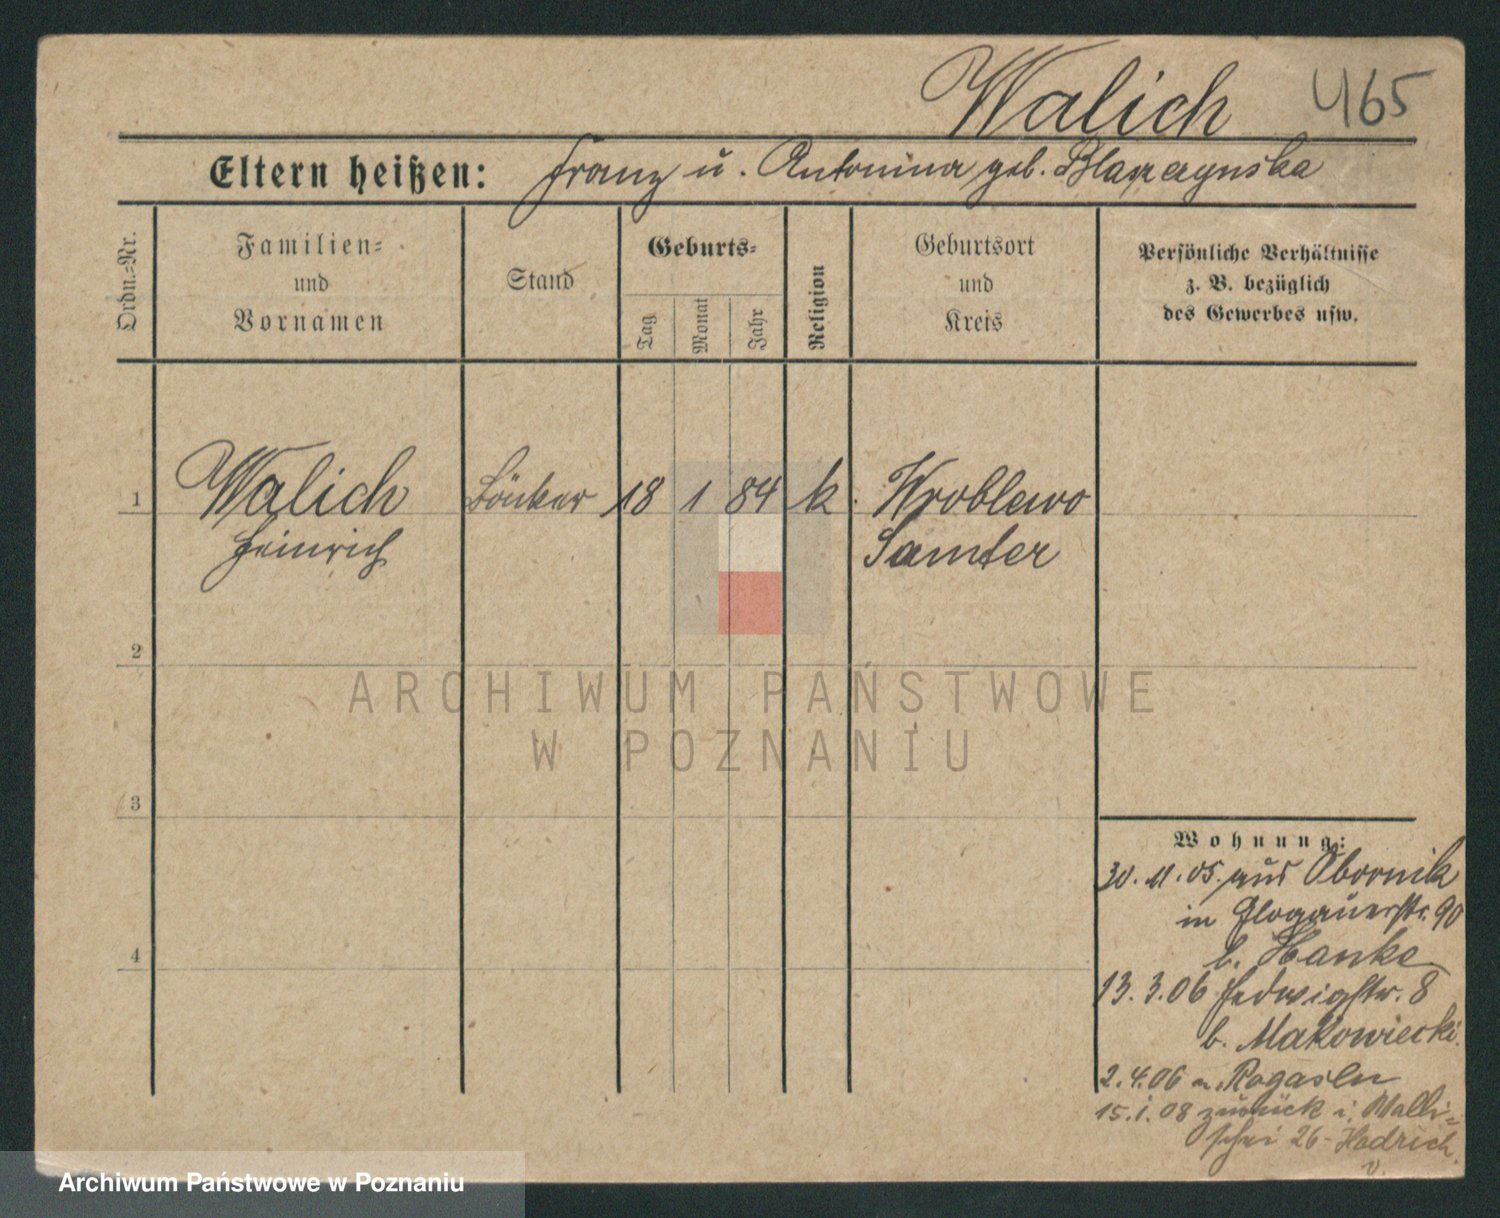 Walich 465
Eltern heißen: Franz u. Antonina geb.
Ordn.-Nr.
Familien-
und
Vornamen
Stand
Geburts-
Tag
Monat
Jahr
Religion
Geburtsort
und
Kreis
Persönliche Verhältnisse
z. B. bezüglich
des Gewerbes usw.
1 Walich 18 1 84 k. Wroblewo
Heinrich Samter
2
ARCHIWUM PAŃSTWOWE
W POZNANIU
3
Wohnung:
30. 11. 05. aus Obornik
in Glogauerstr. 90
b. Hanke
4
13. 3. 06 Hedwigstr. 8
b. Makowiecki.
2. 4. 06 n. Rogasen
15. 1. 08 zurück i. Walli-
schei 26 - Hadrich.
Archiwum Państwowe w Poznaniu